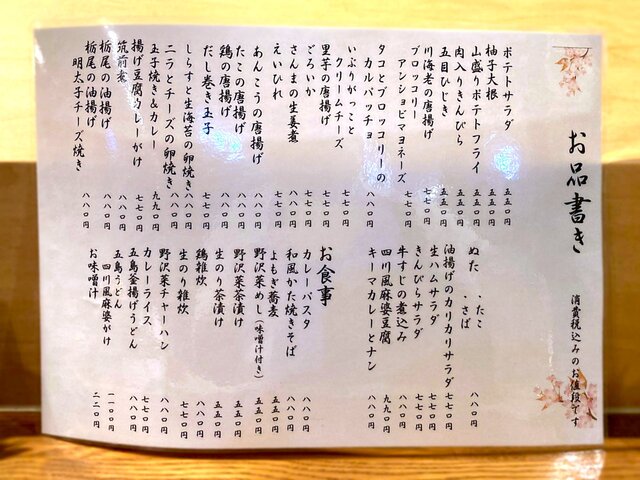 お品書き
消費税込みのお値段です
ポテトサラダ 五五〇円
柚子大根 五五〇円
山盛りポテトフライ 五五〇円
肉入りきんぴら 五五〇円
五目ひじき 五五〇円
川海老の唐揚げ 七七〇円
ブロッコリー
アンショビマヨネーズ 七七〇円
タコとブロッコリーの
カルパッチョ 八八〇円
いぶりがっこと
クリームチーズ 七七〇円
里芋の唐揚げ 七七〇円
ごろいか 七七〇円
さんまの生姜煮 八八〇円
えいひれ 七七〇円
あんこうの唐揚げ 八八〇円
たこの唐揚げ 八八〇円
鶏の唐揚げ 八八〇円
だし巻き玉子 七七〇円
しらすと生海苔の卵焼き 八八〇円
ニラとチーズの卵焼き 八八〇円
玉子焼き&カレー 九九〇円
揚げ豆腐カレーがけ 七七〇円
筑前煮 八八〇円
栃尾の油揚げ 八八〇円
栃尾の油揚げ
明太子チーズ焼き 八八〇円
ぬた ・たこ
・さば 八八〇円
油揚げのカリカリサラダ 七七〇円
生ハムサラダ 七七〇円
きんぴらサラダ 七七〇円
牛すじの煮込み 八八〇円
四川風麻婆豆腐 九九〇円
キーマカレーとナン 八八〇円
お食事
カレーパスタ 八八〇円
和風かた焼きそば 八八〇円
よもぎ蕎麦 五五〇円
野沢菜めし(味噌汁付き) 五五〇円
野沢菜茶漬け 五五〇円
生のり茶漬け 五五〇円
鶏雑炊 八八〇円
生のり雑炊 七七〇円
野沢菜チャーハン 八八〇円
カレーライス 七七〇円
五島釜揚げうどん 七七〇円
五島うどん
四川風麻婆がけ 一一〇〇円
お味噌汁 二二〇円